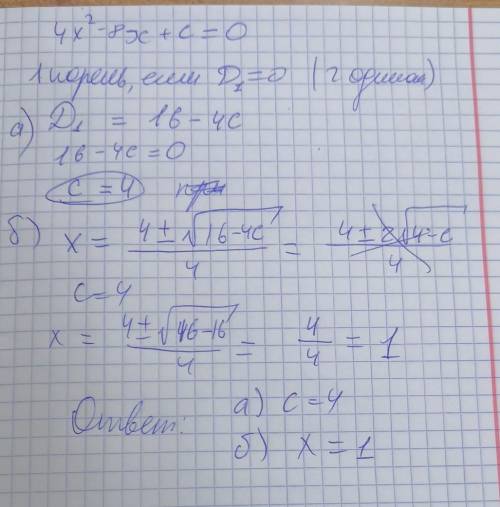 4x² - 8x + c = 0
1 корень, если D₁ = 0 (2 одинак)
а) D₁ = 16 - 4c
16 - 4c = 0
c = 4
б) x = (4 ± √(16-4c))/4 = (4 ± 2√(4-c))/4
c = 4
x = (4 ± √(16-16))/4 = 4/4 = 1
Ответ: а) c = 4
б) x = 1